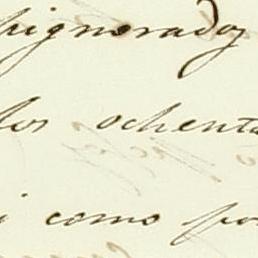 pignorado,
los ochenta
i como por